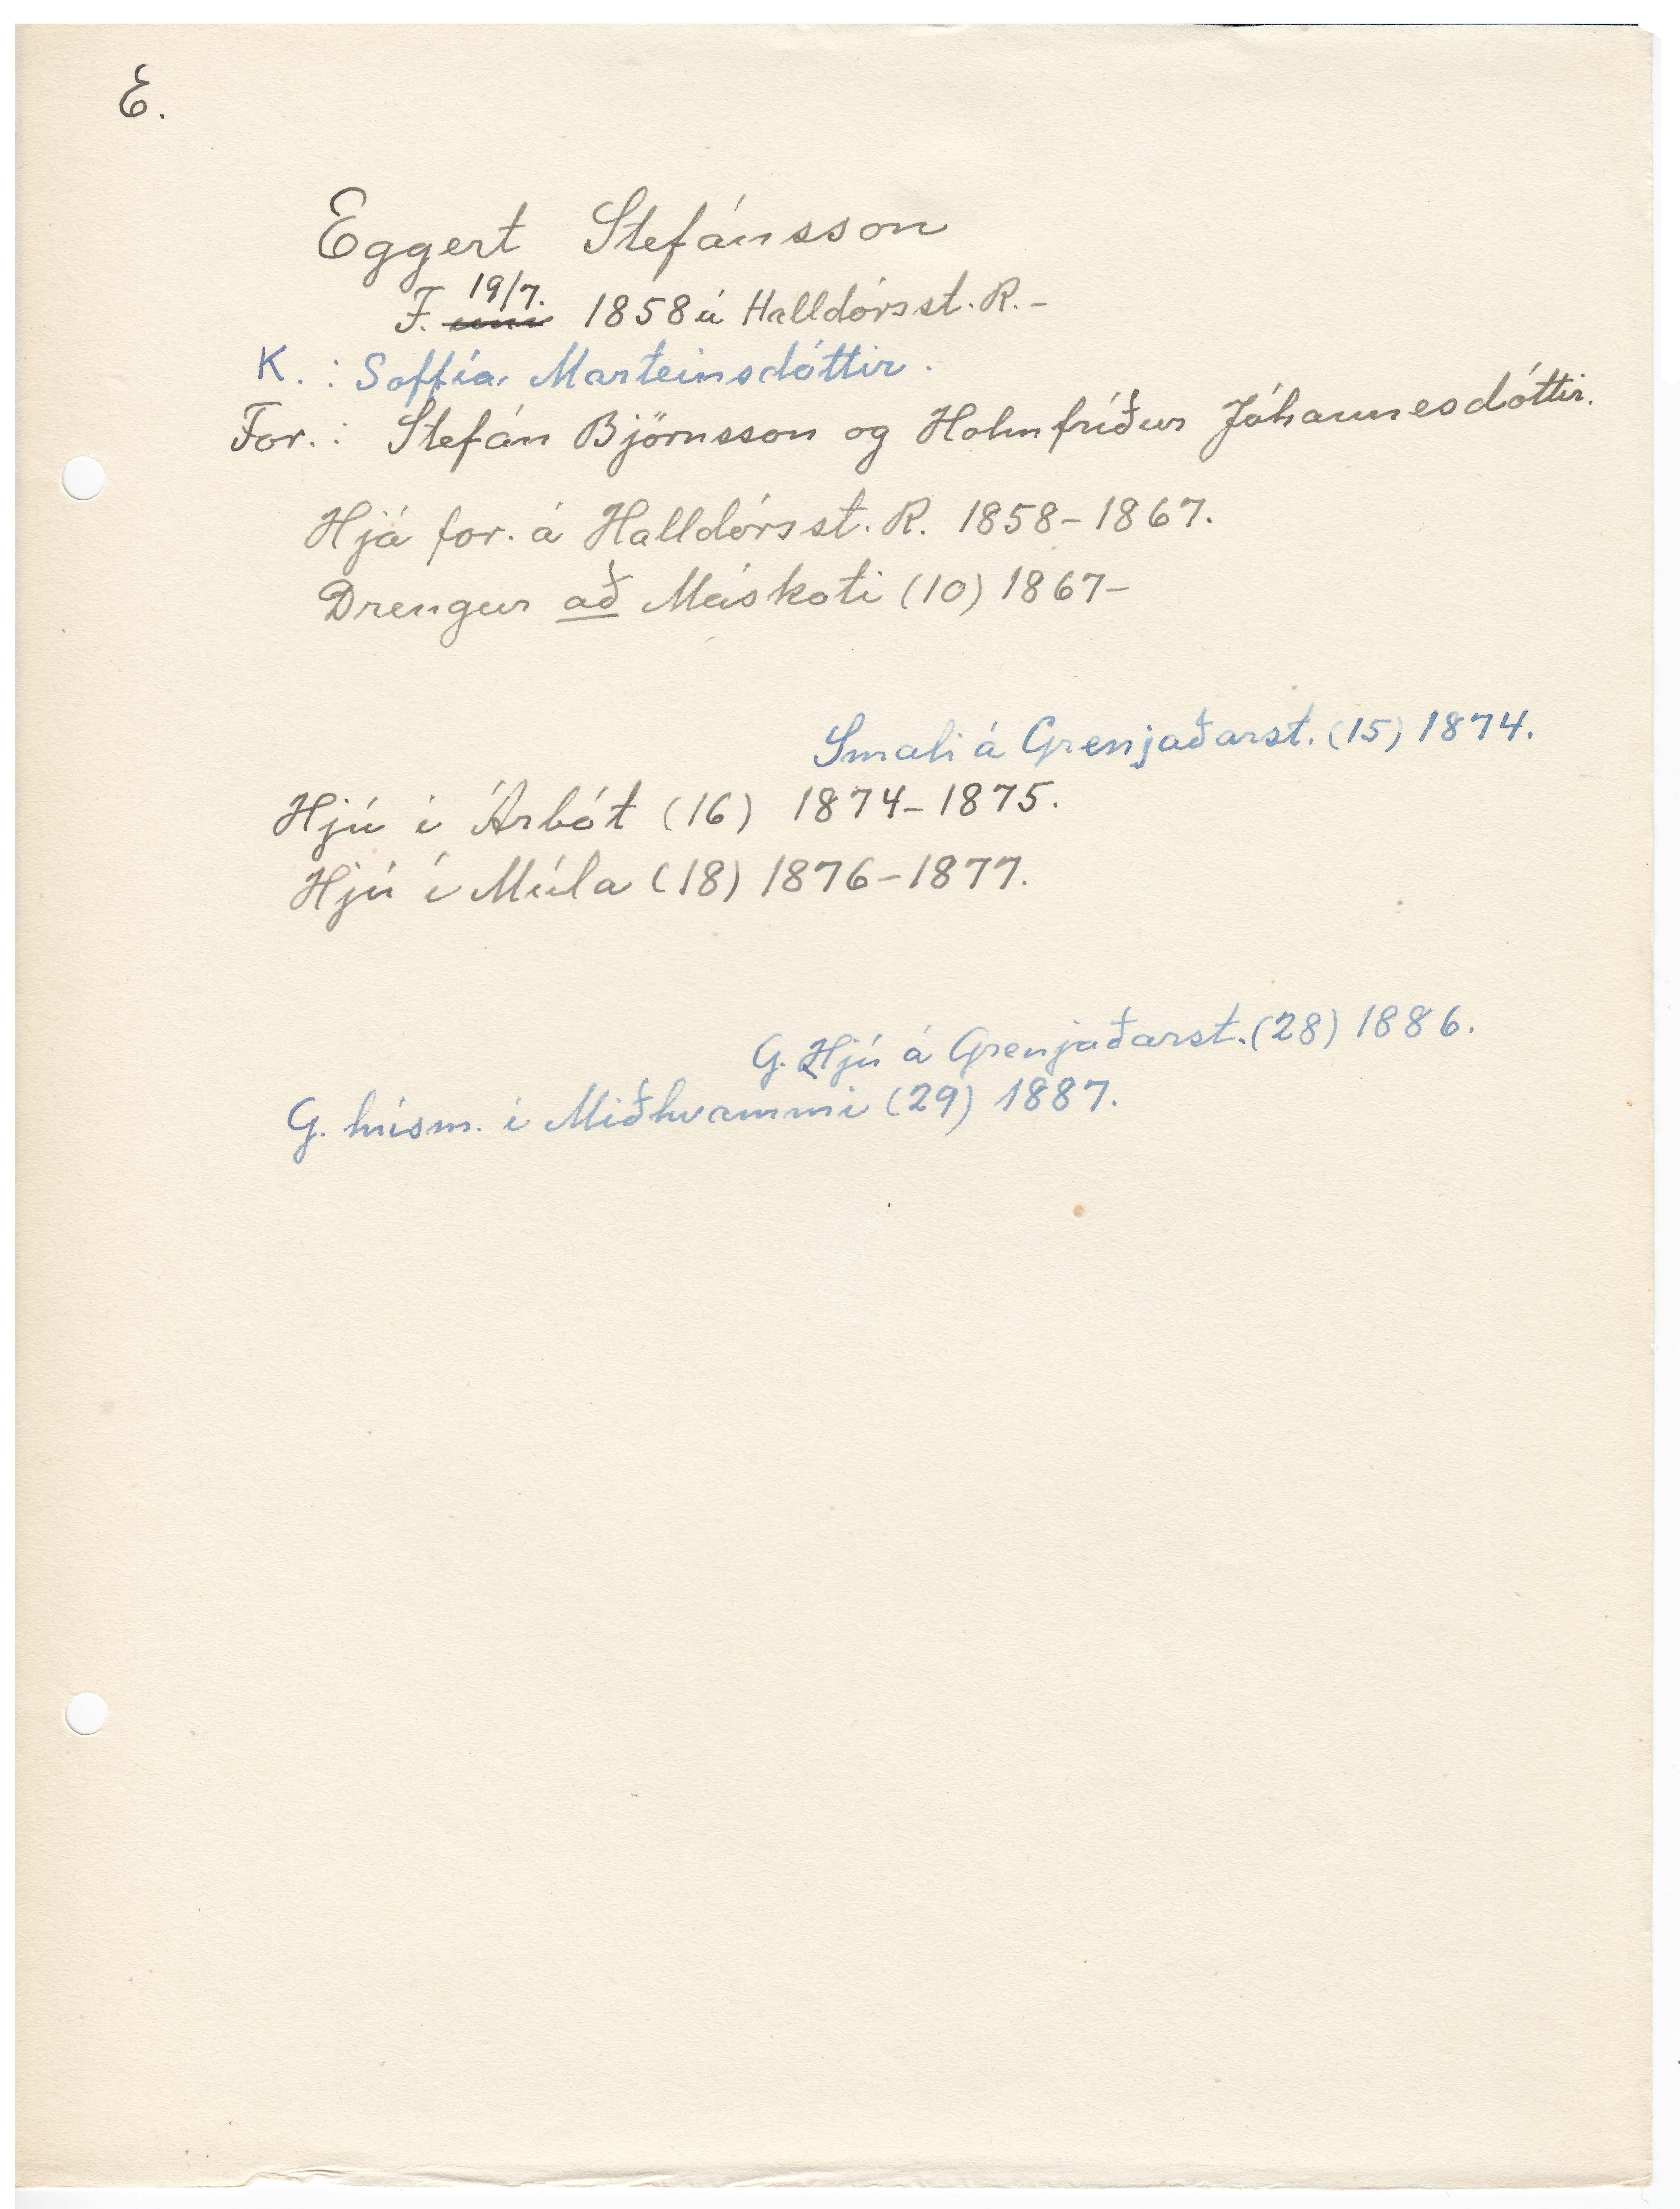 E.
Eggert Stefánsson
F. 19/7. 1858 á Halldórsst. R. -
K. : Soffía Marteinsdóttir.
For. : Stefán Björnsson og Holmfríður Jóhannesdóttir.
Hjá for. á Halldórsst. R. 1858-1867.
Drengur að Máskoti (10) 1867-
Smali á Grenjaðarst. (15) 1874.
Hjú í Árbót (16) 1874-1875.
Hjú í Múla (18) 1876-1877.
G. Hjú á Grenjaðarst. (28) 1886.
G. húsm. í Miðhvammi (29) 1887.